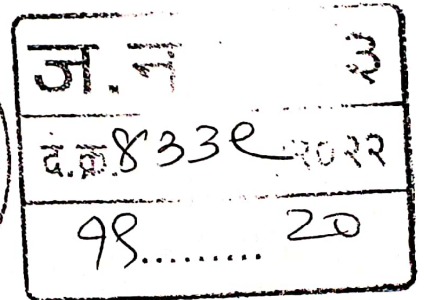 ज.न ३
द.क्र.४३३९ २०२२
१९......... २०